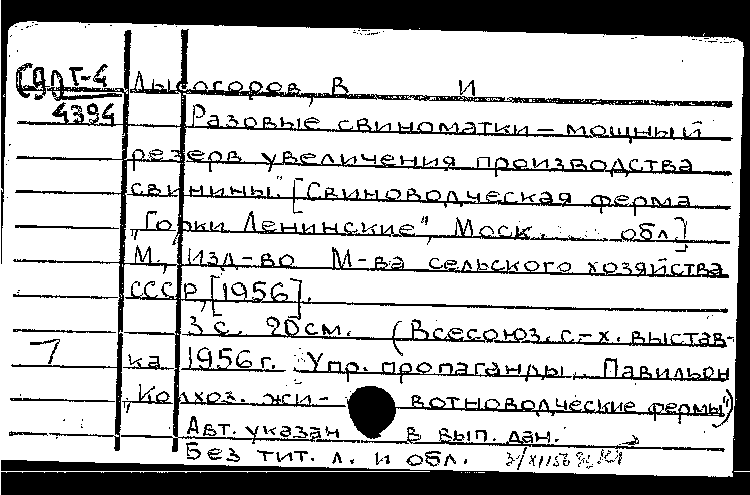 С90 Г-4 Лысогоров, В И
4394 Разовые свиноматки — мощный
резерв увеличения производства
свинины. [Свиноводческая ферма
"Горки Ленинские", Моск. обл.]
М., Изд-во М-ва сельского хозяйства
СССР, [1956].
3 с. 20 см. (Всесоюз. с.-х. выстав-
1 ка 1956 г. Упр. пропаганды. Павильон
"Колхоз. жи- вотноводческие фермы")
Авт. указан в вып. дан.
Без тит. л. и обл.